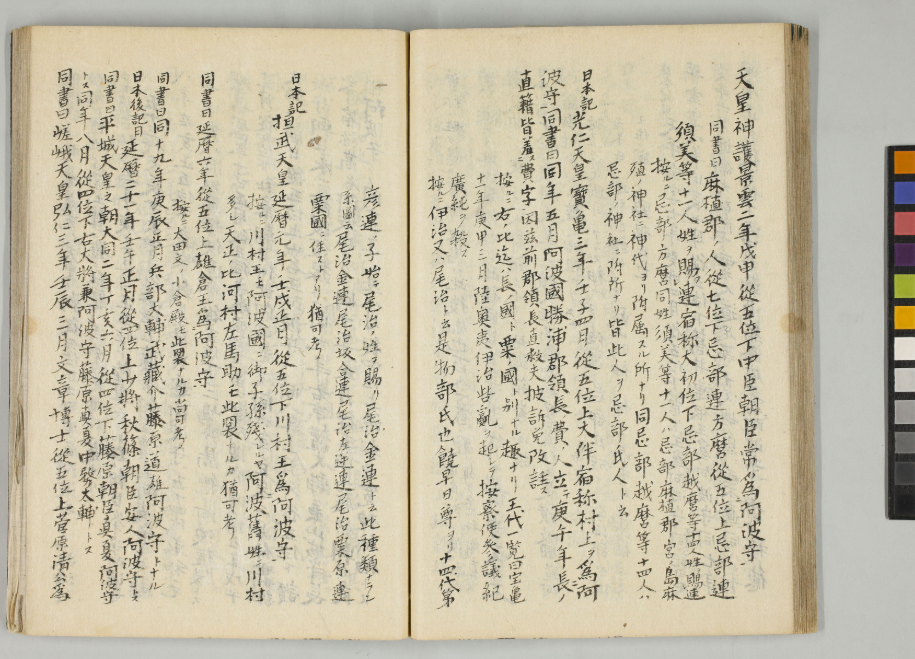 天皇神護景雲二年戊申從五位下中臣朝臣常ヲ爲阿波守
同書曰麻植郡ノ人從七位下忌部連方麿從五位上忌部連
須美等十一人姓ヲ賜連宿称大初位下忌部越麿等十四人姓賜連
按ルニ忌部方麿同姓須美等十一人ハ忌部麻植郡宮ノ島麻
殖ノ神社ニ神代ヨリ附属スル所ナリ同忌部越麿等十四人ハ
忌部ノ神社ニ附所ナリ皆此人ヲ忌部氏人ト云
日本記光仁天皇寶亀三年ノ壬子四月從五位上大伴宿称村上ヲ爲阿
波守同書曰同年五月阿波國勝浦郡領長費ノ人立ニ庚午年長ノ
直籍皆着ス費字因茲前郡領長直救夫披訴免改註ス
按ルニ右ノ比迄ハ長ノ國ト粟國ト別ナル趣ナリ王代一覧曰宝亀
十一年庚申三月陸奥夷伊治乱ヲ起シテ按察使参議紀
廣純ヲ殺ス
按ルニ伊治又ハ尾治トモ云是物部氏也饒早日尊ヨリ十四代第
彦連ノ子始テ尾治ノ姓ヲ賜リ尾治金連ト云此種類ナラン
系圖云尾治金連尾治坂合連尾治左迎連尾治粟原連
粟國ニ住ストアリ猶可考
日本記桓武天皇延暦元年ノ壬戌正月從五位下川村王爲阿波守
按ルニ川村王ハ阿波國ニ御子孫残ヒルヤ阿波舊姓ニ川村
多シ天正ノ比河村左馬助モ此裏トルカ猶可考
同書曰延暦六年從五位上雄倉王爲阿波守
按ルニ大田文ノ小倉殿モ此裏ナルカ尚可考
同書曰同十九年庚辰正月兵部大輔武藏介藤原道雄阿波守トナル
日本後記曰延暦二十一年壬午正月從四位上少將秋篠朝臣安人阿波守トス
同書曰平城天皇之朝大同二年丁亥六月從四位下藤原朝臣真夏阿波守
トス同年八月從四位下右大將兼阿波守藤原真夏中務大輔トス
同書曰嵯峨天皇弘仁三年壬辰三月文章博士從五位上菅原清公爲